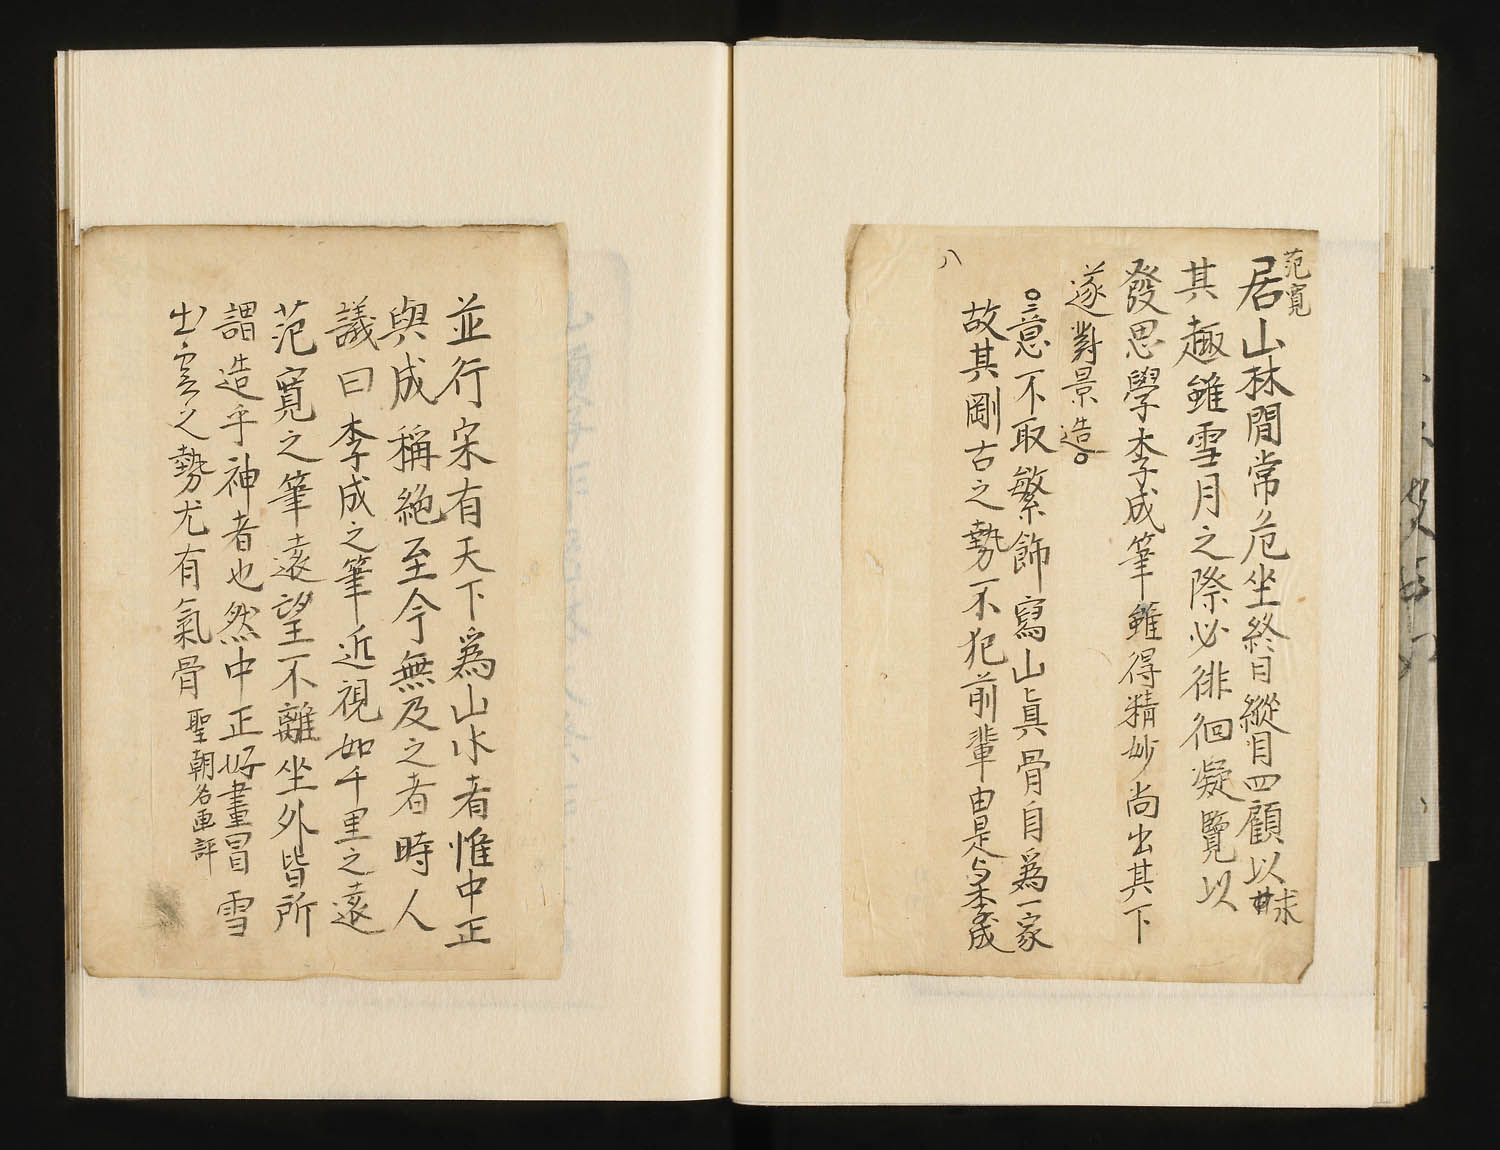 范寬
居山林間常危坐終日縱目四顧以求
其趣雖雪月之際必徘徊凝覽以
發思學李成筆雖得精妙尚出其下
遂對景造
意不取繁飾寫山真骨自為一家
故其剛古之勢不犯前輩由是与李成
八
並行宋有天下為山水者惟中正
與成稱絕至今無及之者時人
議曰李成之筆近視如千里之遠
范寬之筆遠望不離坐外皆所
謂造乎神者也然中正好畫冒雪
出雲之勢尤有氣骨
聖朝名画評